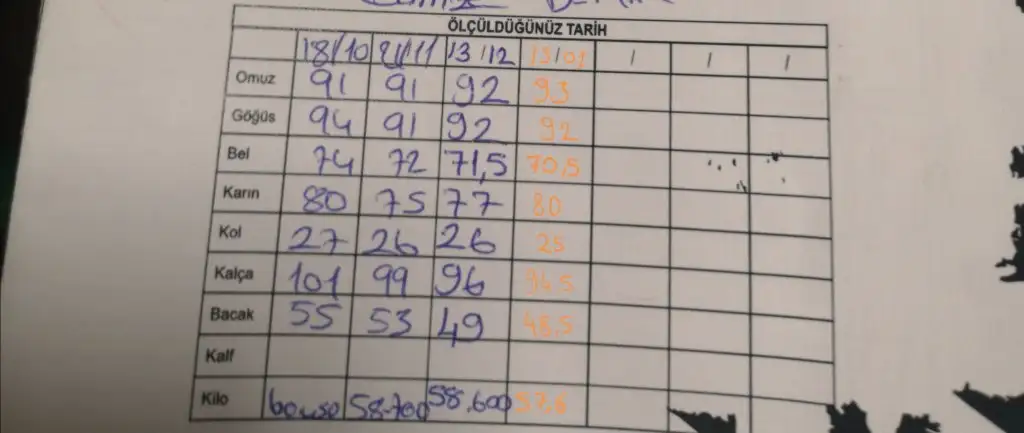 ÖLÇÜLDÜĞÜNÜZ TARİH
18/10 8/11 13/12 13/01 / / /
Omuz 91 91 92 93
Göğüs 94 91 92 92
Bel 74 72 71,5 70,5
Karın 80 75 77 80
Kol 27 26 26 25
Kalça 101 99 96 94.5
Bacak 55 53 49 48.5
Kalf
Kilo 58.700 58.600 57.6